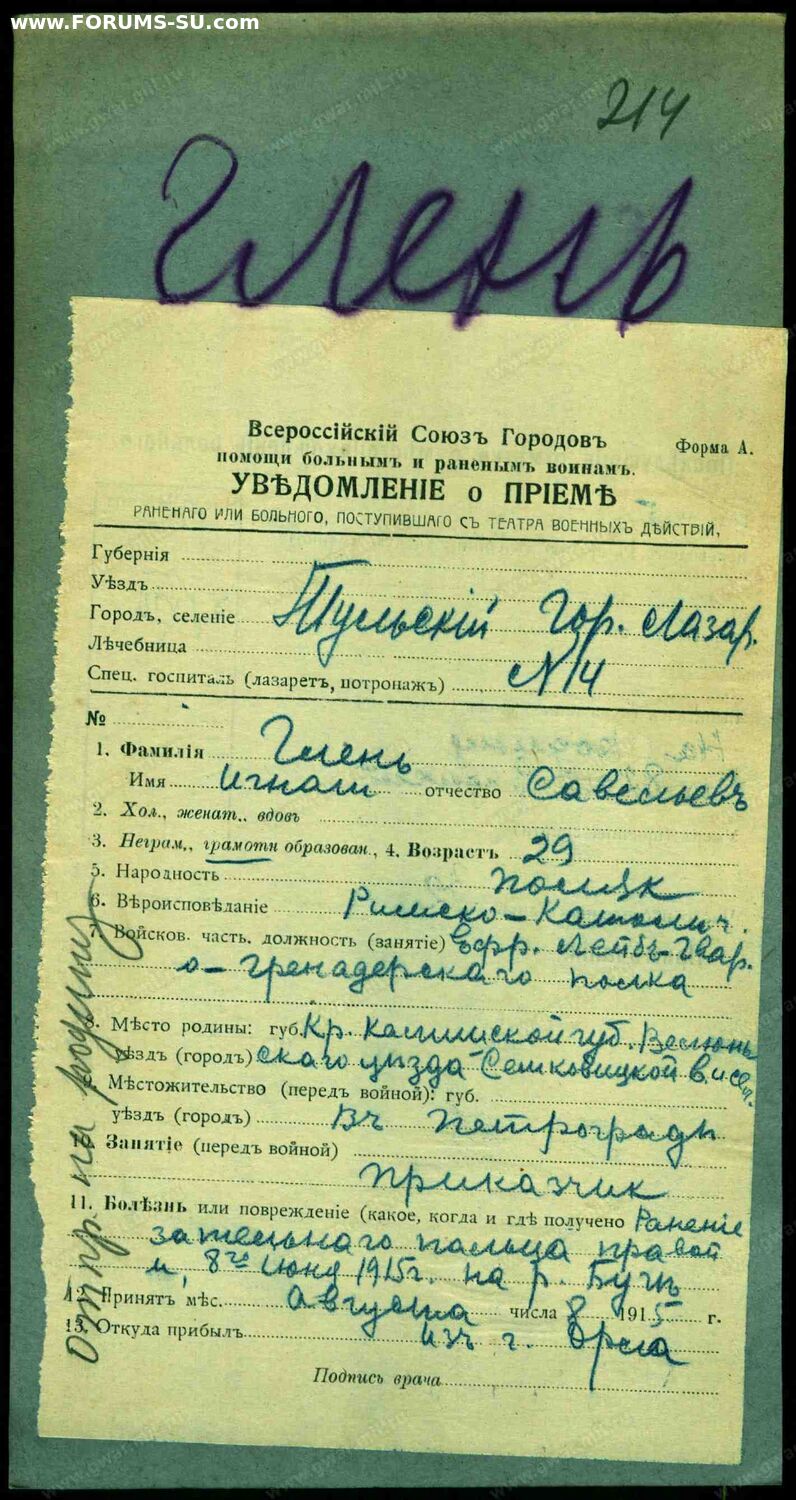 www.FORUMS-SU.com
214
Глень
Всероссійскій Союзъ Городовъ
Форма А.
помощи больнымъ и раненымъ воинамъ.
УВѢДОМЛЕНІЕ о ПРІЕМѢ
РАНЕНАГО ИЛИ БОЛЬНОГО, ПОСТУПИВШАГО СЪ ТЕАТРА ВОЕННЫХЪ ДѢЙСТВІЙ,
Губернія
Уѣздъ
Городъ, селеніе Тульскій Гор. Лазар.
Лѣчебница
Спец. госпиталь (лазаретъ, потронажъ) №14
№
1. Фамилія Глень
Имя Игнат отчество Савельевъ
2. Хол., женат., вдовъ
3. Неграм., грамотн образован., 4. Возрастъ 29
5. Народность поляк
6. Вѣроисповѣданіе Римско-Католич.
7. Войсков. часть. должность (занятіе) ефр. Лейбъ-Гвар.
гренадерскаго полка
8. Мѣсто родины: губ. Кр. Калишской губ. Велюнь
уѣздъ (городъ) скаго уѣзда
9. Мѣстожительство (передъ войной): губ.
уѣздъ (городъ) Въ Петроградѣ
Занятіе (передъ войной)
приказчик
11. Болѣзнь или поврежденіе (какое, когда и гдѣ получено Раненіе
пальца правой
8го Июня 1915г. на р. Бугѣ
12. Принятъ мѣс. Августа числа 8 1915 г.
13. Откуда прибылъ изъ г. Орла
Подпись врача
Отпр. на родину